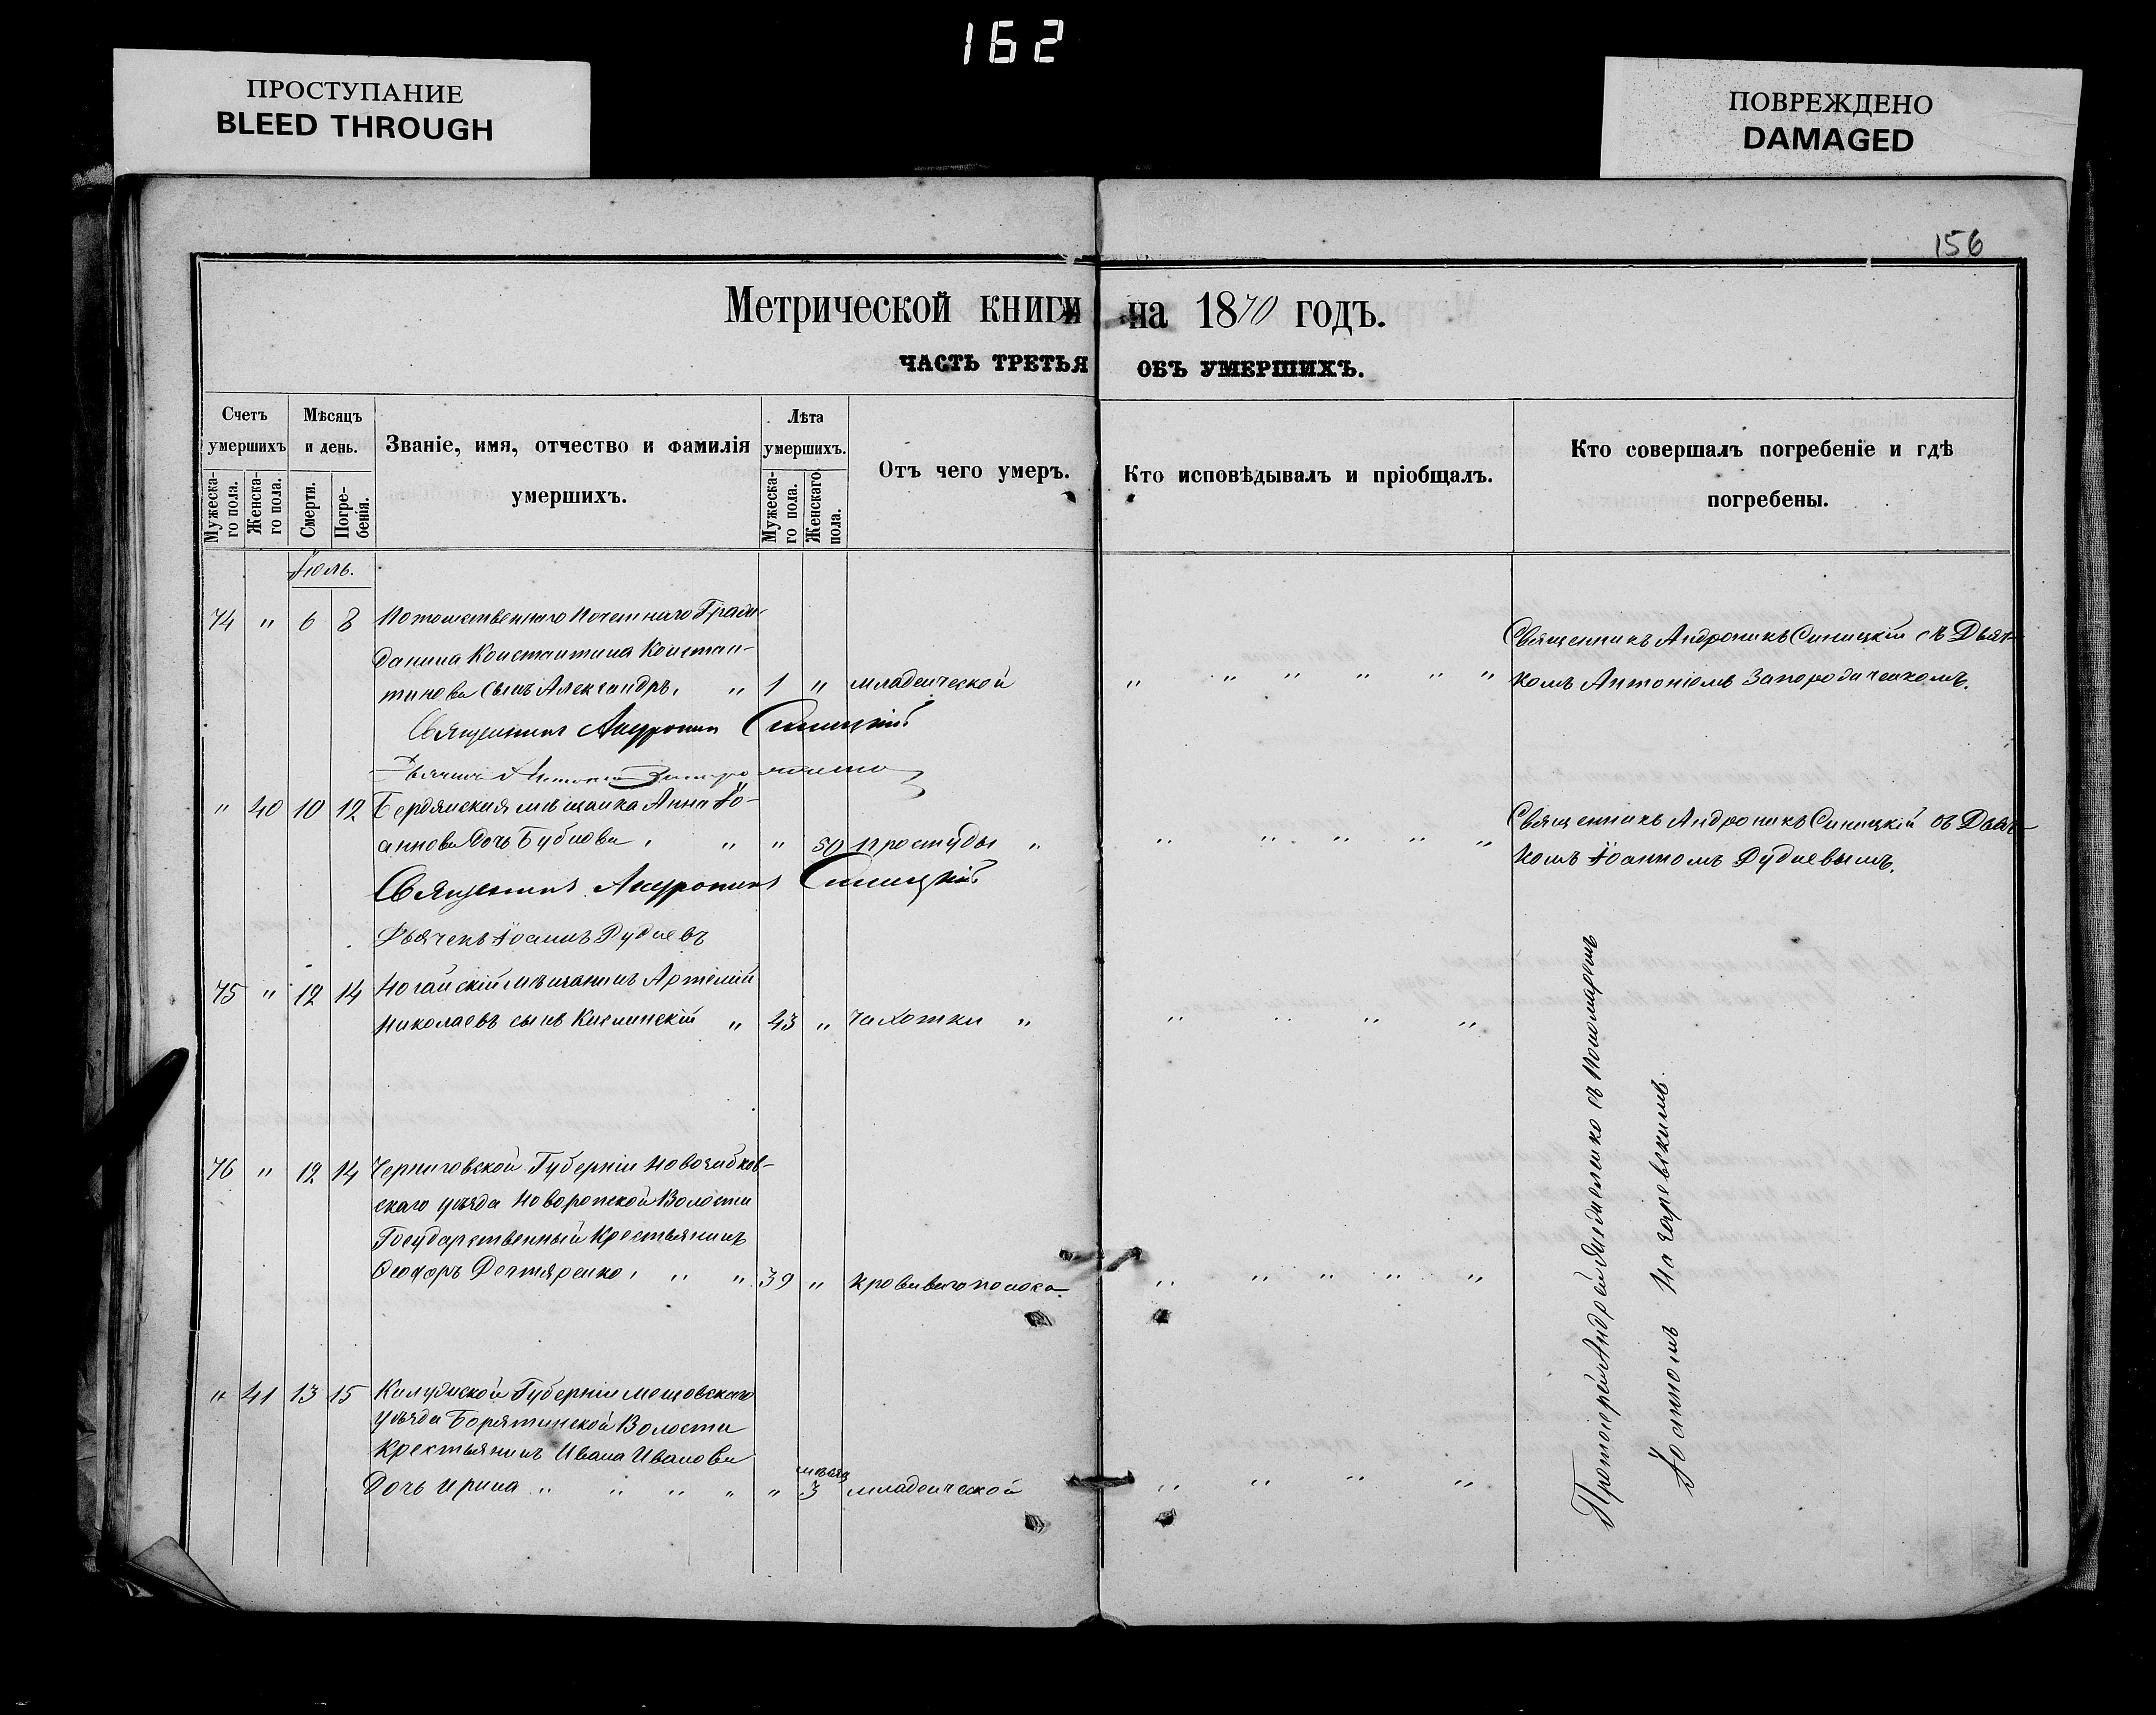 162
ПРОСТУПАНИЕ
BLEED THROUGH
ПОВРЕЖДЕНО
DAMAGED
156
Метрической книги на 1870 годъ.
ЧАСТЬ ТРЕТЬЯ ОБЪ УМЕРШИХЪ.
Счетъ умершихъ
Мужеска-го пола.
Женска-го пола.
Мѣсяцъ и день.
Смерти.
Погре-бенія.
Званіе, имя, отчество и фамилія
умершихъ.
Лѣта умершихъ.
Мужеска-го пола.
Женскаго пола.
Отъ чего умеръ.
Кто исповѣдывалъ и пріобщалъ.
Кто совершалъ погребеніе и гдѣ
погребены.
Іюль.
74 " 6 8 Потомственнаго Почетнаго Граж-
данина Константина Констан-
тинова сынъ Александръ, " 1 " младенческой " " " " " "
Священникъ Андроникъ Синицкій съ Дьяч-
комъ Антоніемъ Запорожченкомъ.
Священникъ Андроникъ Синицкій
Дьячекъ Антоній
" 40 10 12 Бердянская мѣщанка Анна Іо-
аннова Дочь Бубнова, " " 50 простуды " " " " " "
Священникъ Андроникъ Синицкій съ Дьяч-
комъ Іоанномъ Рудневымъ.
Священникъ Андроникъ Синицкій
Дьячекъ Іоаннъ Рудневъ
75 " 12 14 Ногайскій мѣщанинъ Артемій
Николаевъ сынъ " 43 " Чахотки " " " " "
76 " 12 14 Черниговской Губерніи Новозыбков-
скаго уѣзда Новоропской Волости
Государственный Крестьянинъ
Ѳеодоръ Дегтяренко, " " 39 " кроваваго поноса " " " " "
" 41 13 15 Калужской Губерніи Мещовскаго
уѣзда Борятинской Волости
Крестьянина Ивана Иванова
Дочь Ирина " " " " " мѣсяц 3 младенческой " " " "
Протоіерей Андрей съ Пономаремъ
Іоанномъ Нагаревскимъ.